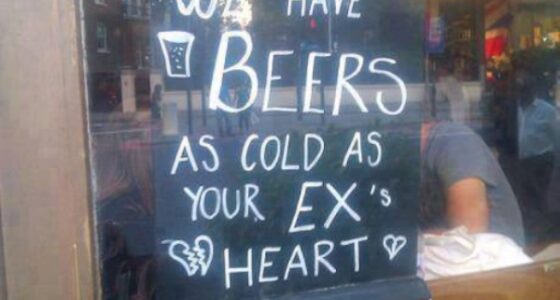 WE HAVE
BEERS
AS COLD AS
YOUR EX's
HEART